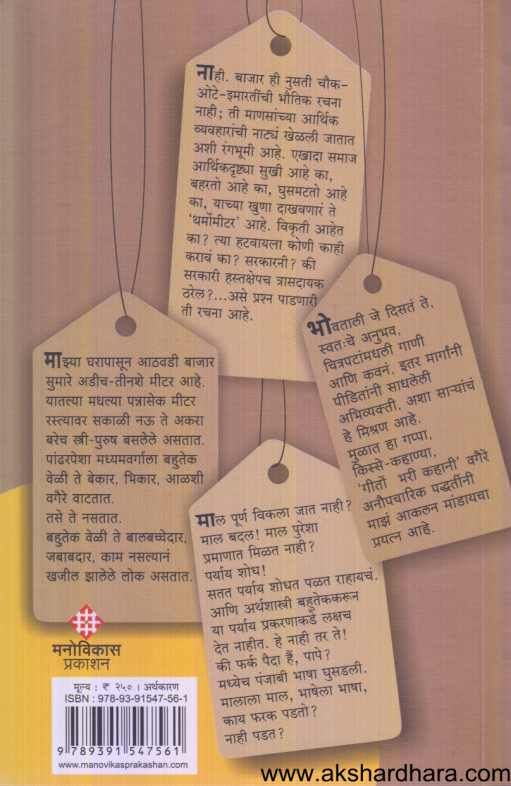 नाही. बाजार ही नुसती चौक-
ओटे-इमारतींची भौतिक रचना
नाही; ती माणसांच्या आर्थिक
व्यवहारांची नाट्यं खेळली जातात
अशी रंगभूमी आहे. एखादा समाज
आर्थिकदृष्ट्या सुखी आहे का,
बहरतो आहे का, घुसमटतो आहे
का, याच्या खुणा दाखवणारं ते
'थर्मोमीटर' आहे. विकृती आहेत
का? त्या हटवायला कोणी काही
करावं का? सरकारनी? की
सरकारी हस्तक्षेपच त्रासदायक
ठरेल?...असे प्रश्न पाडणारी
ती रचना आहे.
भोवताली जे दिसतं ते,
स्वतःचे अनुभव,
चित्रपटांमधली गाणी
आणि कवनं, इतर मार्गांनी
पीडितांनी साधलेली
अभिव्यक्ती, अशा साऱ्यांचं
हे मिश्रण आहे.
मुळात हा गप्पा,
किस्से-कहाण्या,
'गीतों भरी कहानी' वगैरे
अनौपचारिक पद्धतींनी
माझं आकलन मांडायचा
प्रयत्न आहे.
माझ्या घरापासून आठवडी बाजार
सुमारे अडीच-तीनशे मीटर आहे.
यातल्या मधल्या पन्नासेक मीटर
रस्त्यावर सकाळी नऊ ते अकरा
बरेच स्त्री-पुरुष बसलेले असतात.
पांढरपेशा मध्यमवर्गाला बहुतेक
वेळी ते बेकार, भिकार, आळशी
वगैरे वाटतात.
तसे ते नसतात.
बहुतेक वेळी ते बालबच्चेदार,
जबाबदार, काम नसल्यानं
खजील झालेले लोक असतात.
माल पूर्ण विकला जात नाही?
माल बदल! माल पुरेशा
प्रमाणात मिळत नाही?
पर्याय शोध!
सतत पर्याय शोधत पळत राहायचं.
आणि अर्थशास्त्री बहुतेककरून
या पर्याय प्रकरणाकडे लक्षच
देत नाहीत. हे नाही तर ते!
की फर्क पैदा हैं, पापे?
मध्येच पंजाबी भाषा घुसडली.
मालाला माल, भाषेला भाषा,
काय फरक पडतो?
नाही पडत?
मनोविकास
प्रकाशन
मूल्य : ₹ २५० । अर्थकारण
ISBN : 978-93-91547-56-1
9 789391 547561
www.manovikasprakashan.com
www.akshardhara.com